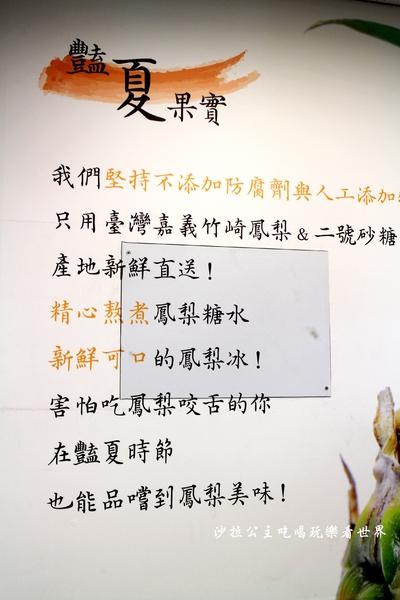 豔夏果實
我們堅持不添加防腐劑與人工添加
只用臺灣嘉義竹崎鳳梨&二號砂糖
產地新鮮直送!
精心熬煮鳳梨糖水
新鮮可口的鳳梨冰!
害怕吃鳳梨咬舌的你
在豔夏時節
也能品嚐到鳳梨美味!
沙拉公主吃喝玩樂看世界